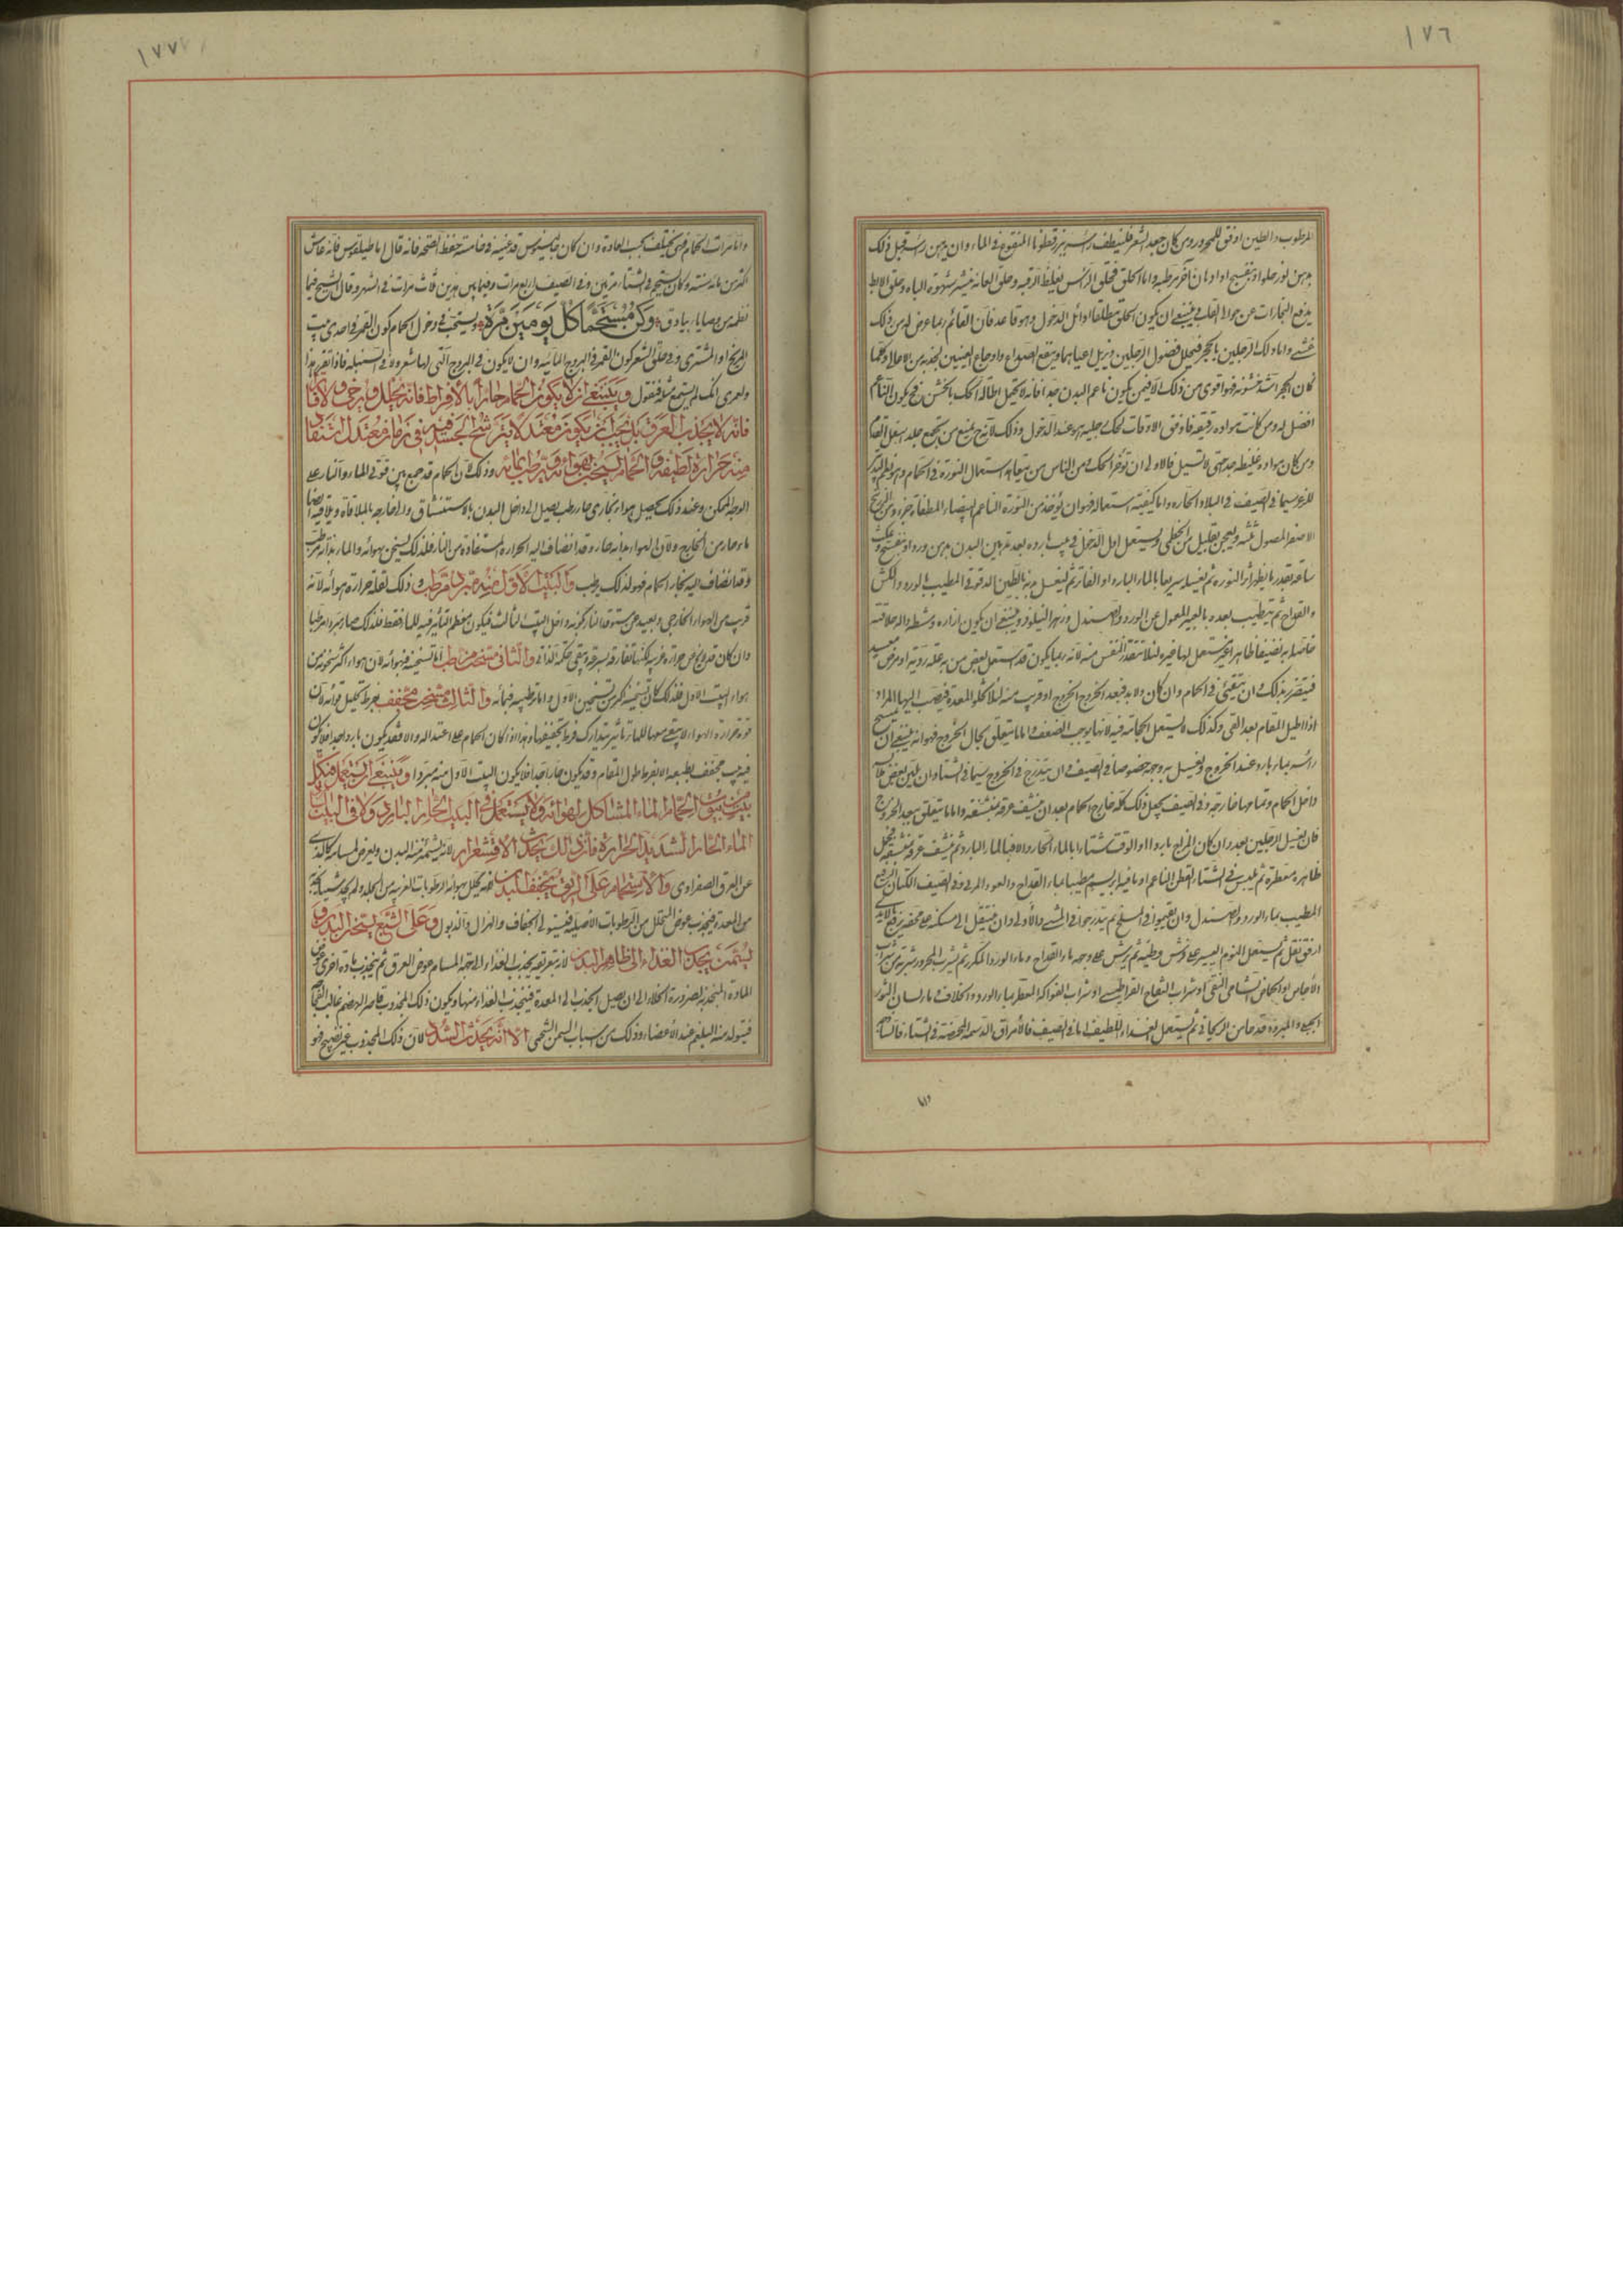 ١٧٦
المرطوب والطين اوفق للمحرور ومن كان جعد الشعر فلينظف رأسه ببزر قطونا المنقوع في الماء وان يدهن رأسه قبل ذلك
بدهن لوز حلو او بنفسج او ادهان اخر مرطبة واما الحلق فحلق الرأس يغلظ الرقبة وحلق العانة يثير شهوة الباه وحلق الابط
يدفع البخارات عن حوالى القلب فينبغي ان يكون الحلق مطلقا اوائل الدخول وهو قاعد فان القائم ربما عرض له من ذلك
غشى واما دلك الرجلين بالحجر فيحلل فضول الرجلين ويزيل اعياهما وينفع الصداع واوجاع العينين لجذبه من الاعالى وكلما
كان الحجر اشد خشونة فهو اقوى من ذلك الا فيمن يكون ناعم البدن جدا فانه لا يحتمل اطالة الحك بالخشن فح يكون الناعم
افضل له ومن كانت مواده رقيقة فاوفق الاوقات لحك رجليه هو عند الدخول وذلك لانه ح يمنع من تجمع جلد اسفل القدم
ومن كان مواده غليظة جدا حتى لا تسيل فالاولى ان تؤخر الحك ومن الناس من يعتاد استعمال النورة في الحمام وهو نظيم البدن
للزع سيما في الصيف في البلاد الحارة واما كيفية استعماله فهو ان يؤخذ من النورة الناعم البيضاء المطفاة جزء ومن الزرنيخ
الاصفر المصول ثلثه ويعجن بقليل من الخطمى ويستعمل اول الدخول في بيت بارد بعد تدهين البدن بدهن ورد او بنفسج ويمكث
ساعة بقدر ما يظهر اثر النورة ثم يغسل سريعا بالماء البارد او الفاتر ثم ليغسل بدنه بالطين المدقوق المطيب بالورد والكش
والقداح ثم يتطيب بعده بالعبير المعمول عن الورد والصندل وزهر النيلوفر وينبغي ان يكون ازاره ومشطه وآلة حلاقته
خاصا به نظيفا طاهرا لم يستعمل لها غيره لئلا تتقذر النفس منه لانه ربما يكون قد استعمل بعض من به علة ردية او مرض معد
فيتضرر بذلك وان يتقئ في الحمام وان كان ولا بد فبعد الخروج او قريب منه لئلا تخلو المعدة فينصب اليها المرار
اذا اطيل المقام بعد القى وكذلك لا يستعمل الحجامة فيه لانها يوجب الضعف واما ما يتعلق بحال الخروج فهو انه ينبغي ان يمسح
رأسه بماء بارد عند الخروج ويغسل به وجهه خصوصا في الصيف وان يتدرج في الخروج سيما في الشتاء وان يلبس بعض ثيابه
داخل الحمام وتمامها خارجه وفي الصيف يجعل ذلك كله خارج الحمام بعد ان ينشف عرقه بمنشفة واما ما يتعلق ببعد الخروج
فان يغسل الرجلين بعده وان كان المزاج باردا او الوقت شتاء بالماء الحار والا فبالماء البارد ثم ينشف عرقه
طاهرة معطرة ثم يلبس في الشتاء القطن الناعم او ما فيه ابريسم مطيبا بماء القداح والعود المربى وفي الصيف الكتان الرفيع
المطيب بماء الورد والصندل وان يقيموا في المسلخ ثم يتدرجوا في المشى والاولى وان ينتقل الى مسكنه على
ارفق نقل ثم يستعمل النوم اليسير على فرش وطية ثم يرش على وجهه ماء القداح وماء الورد المكرر ثم يشرب المحرور شربة من شراب
الاجاص او الحماض الشامى النقى او شراب التفاح او شراب الفواكه المعطر بماء الورد والخلاف وماء لسان الثور
ثم يستعمل الغذاء اللطيف اما في الصيف فالامراق الدسمة المحمضة في الشتاء
١٧٧
واما مرات الحمام فهى يختلف بحسب العادة وان كان جالينوس قد عينه في خامسة حفظ الصحة فانه قال اما طيلقوس فانه عاش
اكثر من مائة سنة وكان يستحم في الشتاء مرتين وفي الصيف اربع مرات وفيما بين هذين ثلاث مرات في الشهر وقال الشيخ فيما
نظمه من وصايا بياذوق وكن مستحما كل يومين مرة ويستحب في دخول الحمام كون القمر في احدى بيت
المريخ او المشترى وفي حلق الشعر كون القمر في البروج المائية وان لا يكون في البروج التى لها شعر وفي السنبلة فاذا تقرر هذا
ولعمرى انك لم تستمع مثله فنقول وينبغى ان لا يكون الحمام حارا بالافراط فانه يحلل ويرخى ولا فاترا
فانه لا يجذب العرق بل يجب ان يكون معتدلا يترشح الجسد فيه في زمان معتدل استفاد
منه حرارة لطيفة والحمام يسخن بهوائه ويرطب بمائه وذلك لان الحمام قد جمع بين قوتى الماء والنار على
الوجه الممكن وعند ذلك يحصل هواء بخارى حار رطب يصل الى داخل البدن بالاستنشاق والى خارجه بالملاقاة ويلاقيه ايضا
ماء حار من الخارج ولان الهواء بذاته حار وقد انضاف اليه الحرارة المستفادة من النار فلذلك يسخن بهوائه والماء بذاته مرطب
وقد انضاف اليه بخار الحمام فهو لذلك يرطب والبيت الاول منه مبرد مرطب وذلك لقلة حرارة هوائه لانه
قريب من الهواء الخارجى وبعيد عن مستوقد النار لكونه داخل البيت الثالث فيكون معظم التأثير فيه للماء فقط فلذلك صار مبردا مرطبا
وان كان قد عرض حرارة غريبة لكنها تفارقه بسرعة ويبقى حكمه الذاتى والثانى مسخن مرطب اما تسخينه فبهوائه لان هواءه اكثر سخونة من
هواء البيت الاول فلذلك كان تسخينه اكثر من تسخين الاول واما ترطيبه فبمائه والثالث مسخن مجفف بفرط تحليل هوائه لان
قوة حرارة الهواء لا يبقى معها للماء تأثير يتدارك فرط تجفيفها وهذا اذا كان الحمام على اعتداله والا فقد يكون باردا جدا فلا يكون
فيه بيت مجفف بطبعه الا بفرط طول المقام وقد يكون حارا جدا فلا يكون البيت الاول منه مبردا وينبغى ان يستعمل في كل
بيت من بيوت الحمام الماء المشاكل لهوائه ولا يستعمل في البيت الحار البارد ولا في البيت البارد
الماء الحار الشديد الحرارة فان ذلك يحدث الاقشعرار لانه يشمئز منه البدن ويعرض لمسامه كالذى
عن العرق الصفراوى والاستحمام على الريق يجفف البدن لانه يحلل بهوائه الرطوبات الغريبة من الجلد ولم يجد شيئا
من المعدة فيجذب عوض المتحلل من الرطوبات الاصلية فينتهى الى الجفاف والهزال والذبول وعلى الشبع يسخن البدن و
يسمنه يجذب الغذاء الى ظاهر البدن لانه بتعريقه يجذب الغذاء الى جهة المسام عوض العرق ثم ينجذب مادة اخرى عوض
المادة المنجذبة لضرورة الخلاء الى ان يصل الجذب الى المعدة فينجذب الغذاء منها ويكون ذلك المجذوب قاصر الهضم غالب الفجاجة
فيتولد منه البلغم عند الاعضاء وذلك من اسباب السمن الشحمى الا انه يحدث السدد لان ذلك المجذوب غير نضيج فهو